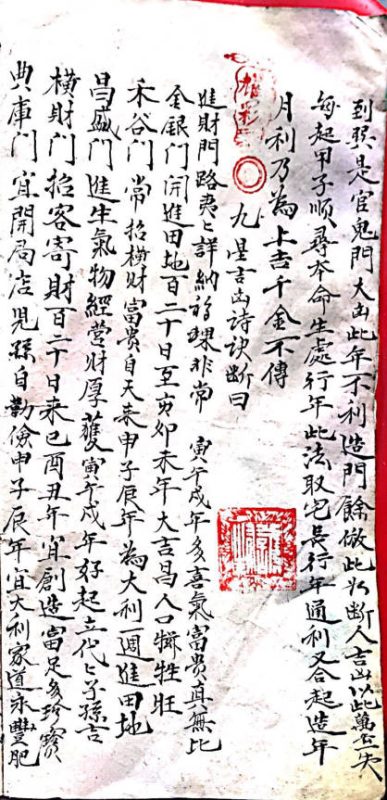 到艮是官鬼門大凶此年不利造門餘倣此以斷人吉凶以此萬無一失
每起甲子順尋本命生處行年此法取宅長行年通利又合起造年
月利乃為上吉千金不傳
九星吉凶詩訣斷曰
進財門路夷〻詳納福理非常 寅午戌年多喜氣富貴真無比
金銀門開進田地百二十日至亥卯未年大吉昌人口犧牲旺
禾谷門常招橫財富貴自天來申子辰年為大利一週進田地
昌盛門進生氣物經營財厚獲寅午戌年好起立代〻子孫吉
橫財門招客寄財百二十日來巳酉丑年宜創造富足多珍寶
典庫門宜開局店兒孫自勤儉申子辰年宜大利家道永豐肥